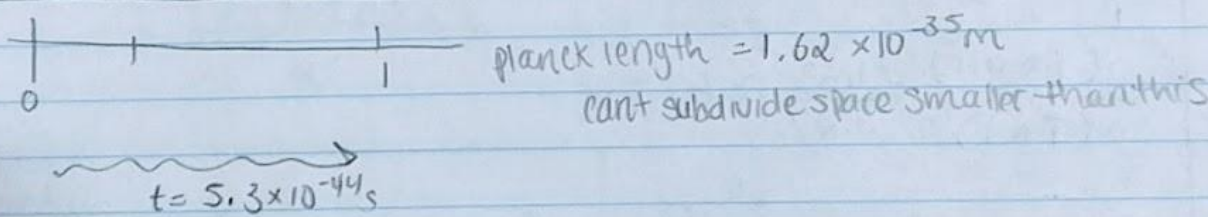 0 1
planck length = 1.62 ×10⁻³⁵m
cant subdivide space smaller than this
t= 5.3×10⁻⁴⁴s